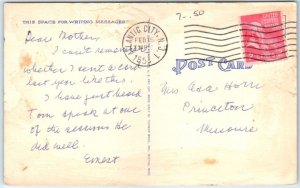 THIS SPACE FOR WRITING MESSAGES
7-.50
ATLANTIC CITY, N.J.
FEB
195
POST CARD
Dear Mother,
I can't remember
whether I sent a card
last yes like this.
I have just heard
Tom speak at one
of the sessions. He
did well.
Ernest
Mrs Ada Horn
Princeton
Missouri